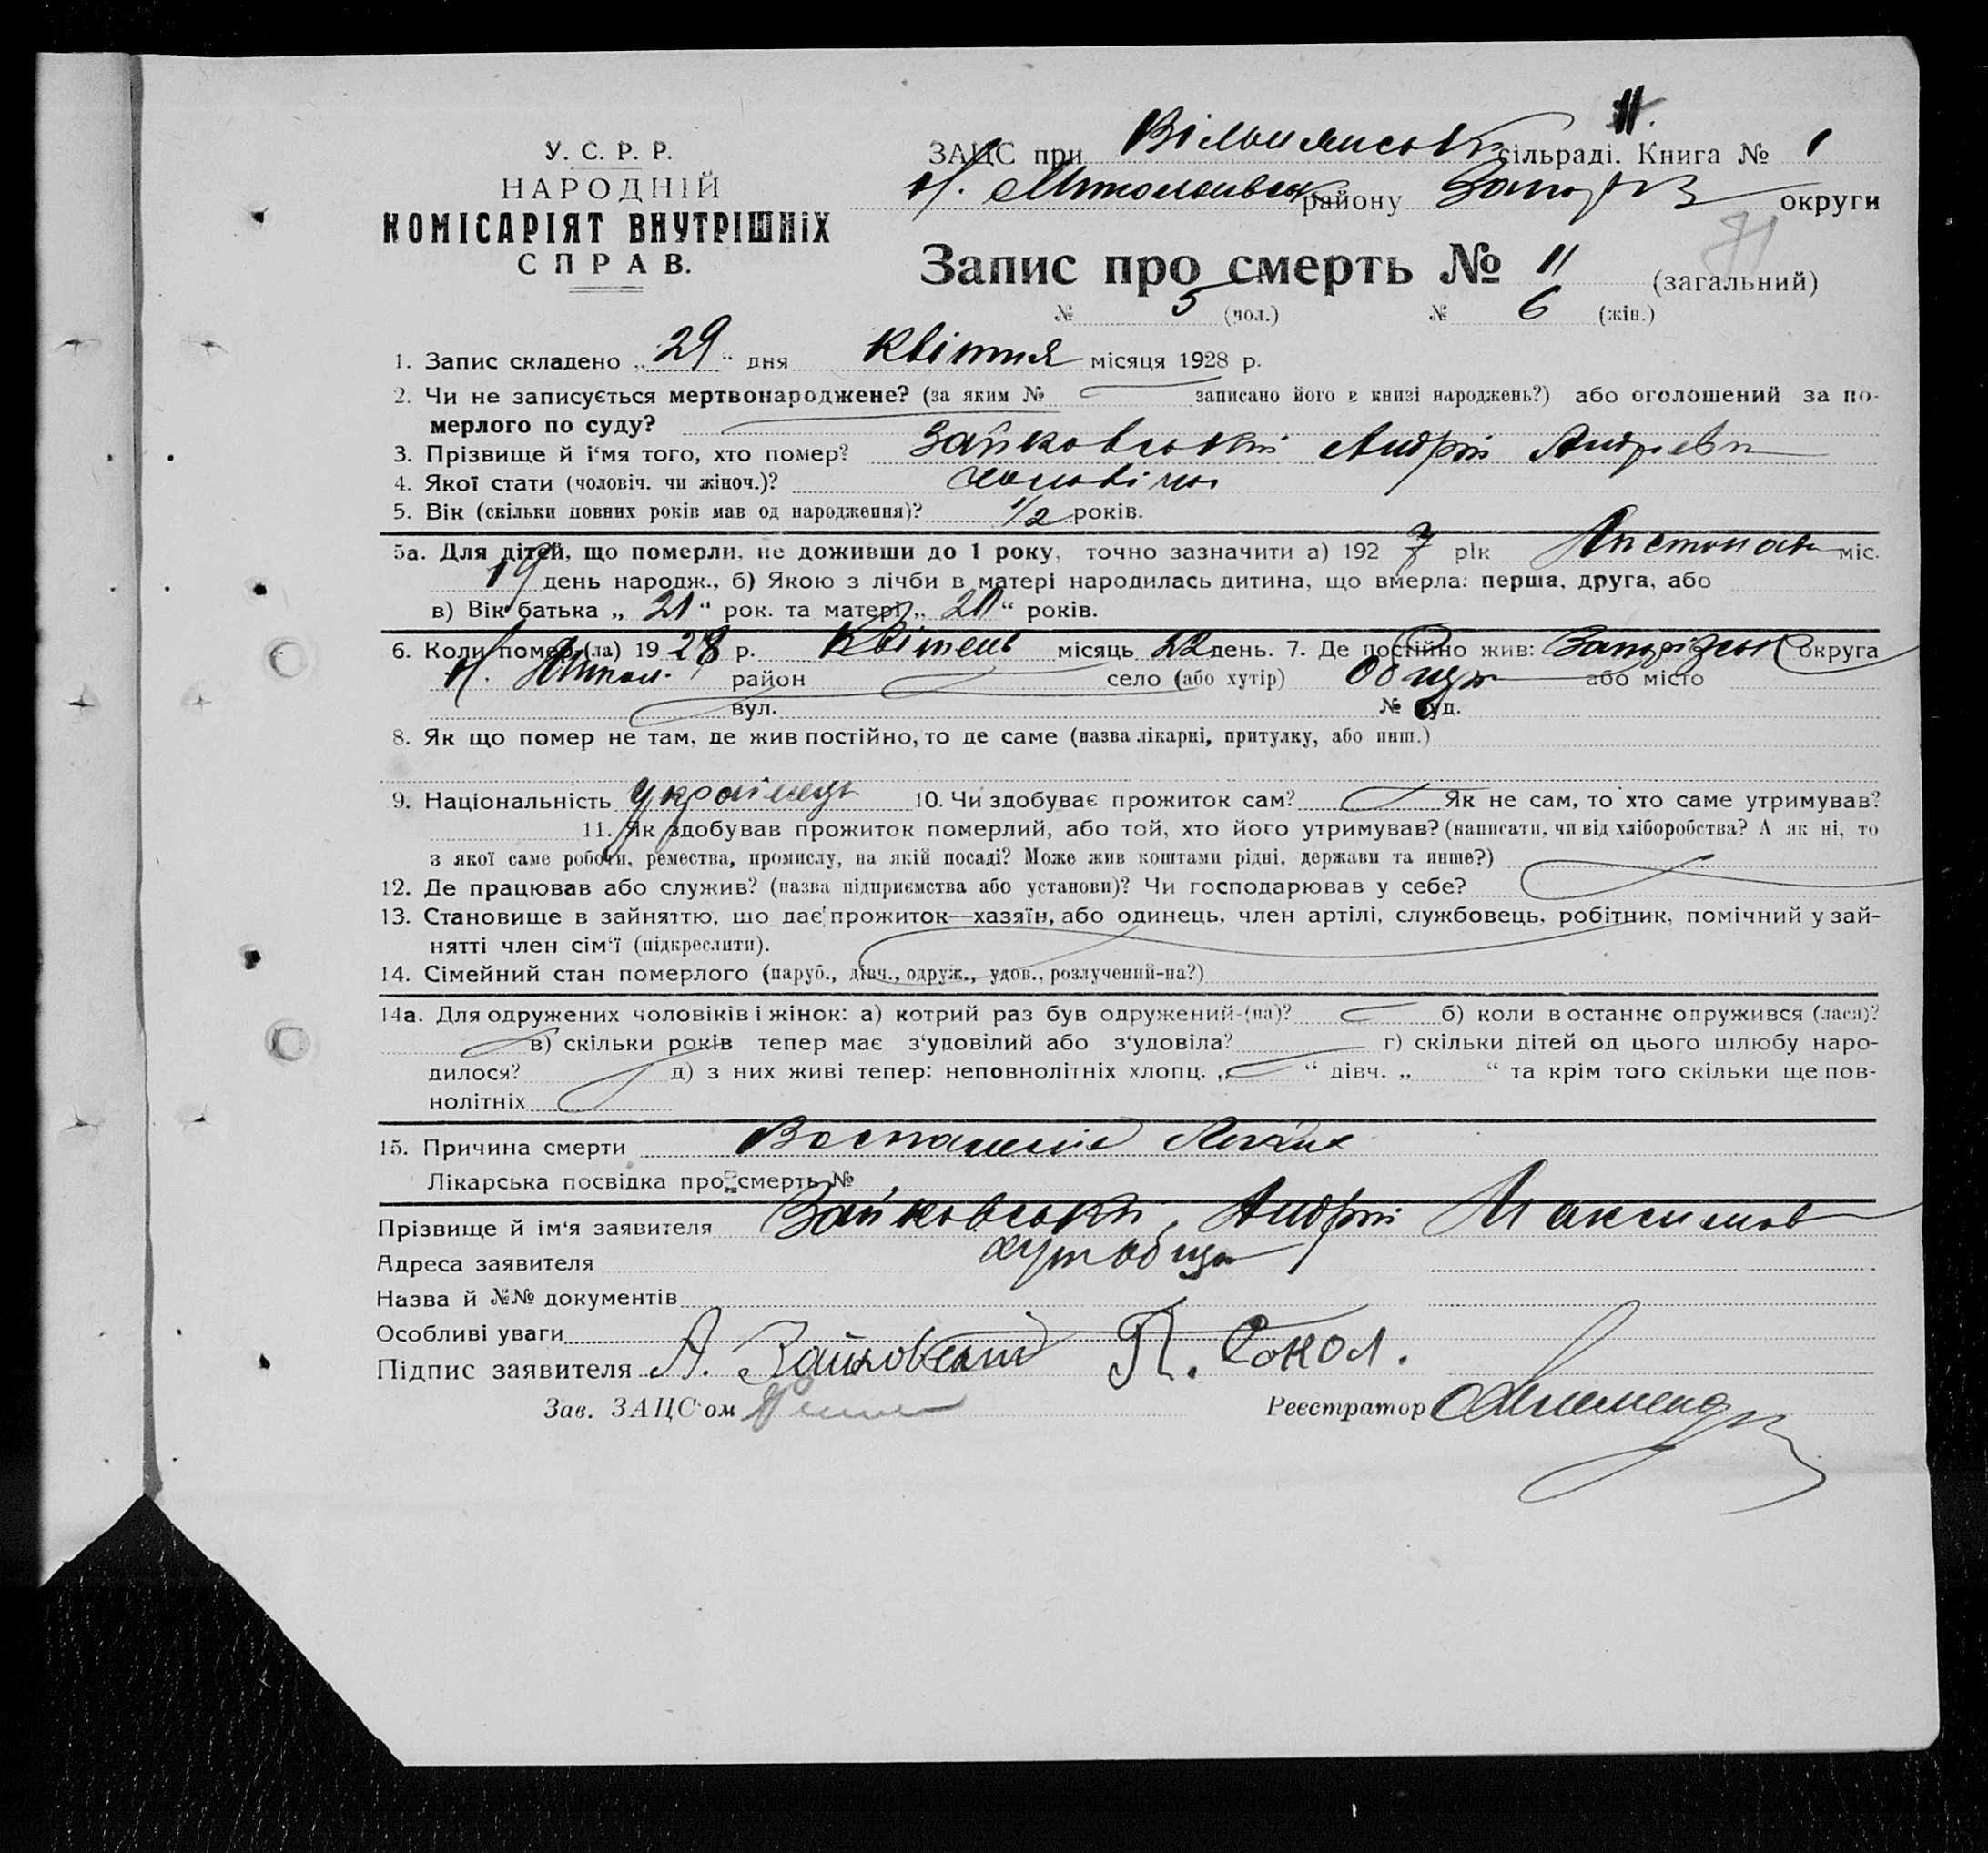 11.
У. С. Р. Р.
НАРОДНІЙ
КОМІСАРІЯТ ВНУТРІШНІХ
СПРАВ.
ЗАЦС при сільраді. Книга № 1
району округи
71
Запис про смерть № 11 (загальний)
№ 5 (чол.) № 6 (жін.)
1. Запис складено „29“ дня Квітня місяця 1928 р.
2. Чи не записується мертвонароджене? (за яким № записано його в книзі народжень?) або оголошений за по-
мерлого по суду?
3. Прізвище й і'мя того, хто помер? Зайковський Андрій Андрієви
4. Якої стати (чоловіч. чи жіноч.)? чоловічої
5. Вік (скільки повних років мав од народження)? 1/2 років.
5а. Для дітей, що померли, не доживши до 1 року, точно зазначити а) 1927 рік Листопада міс.
19 день народж., б) Якою з лічби в матері народилась дитина, що вмерла: перша, друга, або
в) Вік батька „21“ рок. та матері „20“ років.
6. Коли помер (ла) 1928 р. Квітень місяць 22 день. 7. Де постійно жив: Запорізськ округа
район село (або хутір) Обща або місто
вул. № буд.
8. Як що помер не там, де жив постійно, то де саме (назва лікарні, притулку, або инш.)
9. Національність Українець 10. Чи здобуває прожиток сам? Як не сам, то хто саме утримував?
11. Як здобував прожиток померлий, або той, хто його утримував? (написати, чи від хліборобства? А як ні, то
з якої саме роботи, ремества, промислу, на якій посаді? Може жив коштами рідні, держави та инше?)
12. Де працював або служив? (назва підприємства або установи)? Чи господарював у себе?
13. Становище в зайняттю, що дає прожиток—хазяїн, або одинець, член артілі, службовець, робітник, помічний у зай-
нятті член сім'ї (підкреслити).
14. Сімейний стан померлого (паруб., дівч., одруж., удов., розлучений-на?)
14а. Для одружених чоловіків і жінок: а) котрий раз був одружений-(на)? б) коли востаннє одружився (лася)?
в) скільки років тепер має з'удовілий або з'удовіла? г) скільки дітей од цього шлюбу наро-
дилося? д) з них живі тепер: неповнолітніх хлопц. „ “ дівч. „ “ та крім того скільки ще пов-
нолітніх
15. Причина смерти Воспаленіе Легких
Лікарська посвідка про смерть №
Прізвище й ім'я заявителя Зайковський Андрій Максимов
Адреса заявителя хут Обща
Назва й №№ документів
Особливі уваги
Підпис заявителя А. Зайковский П. Сокол.
Зав. ЗАЦС'ом Реєстратор